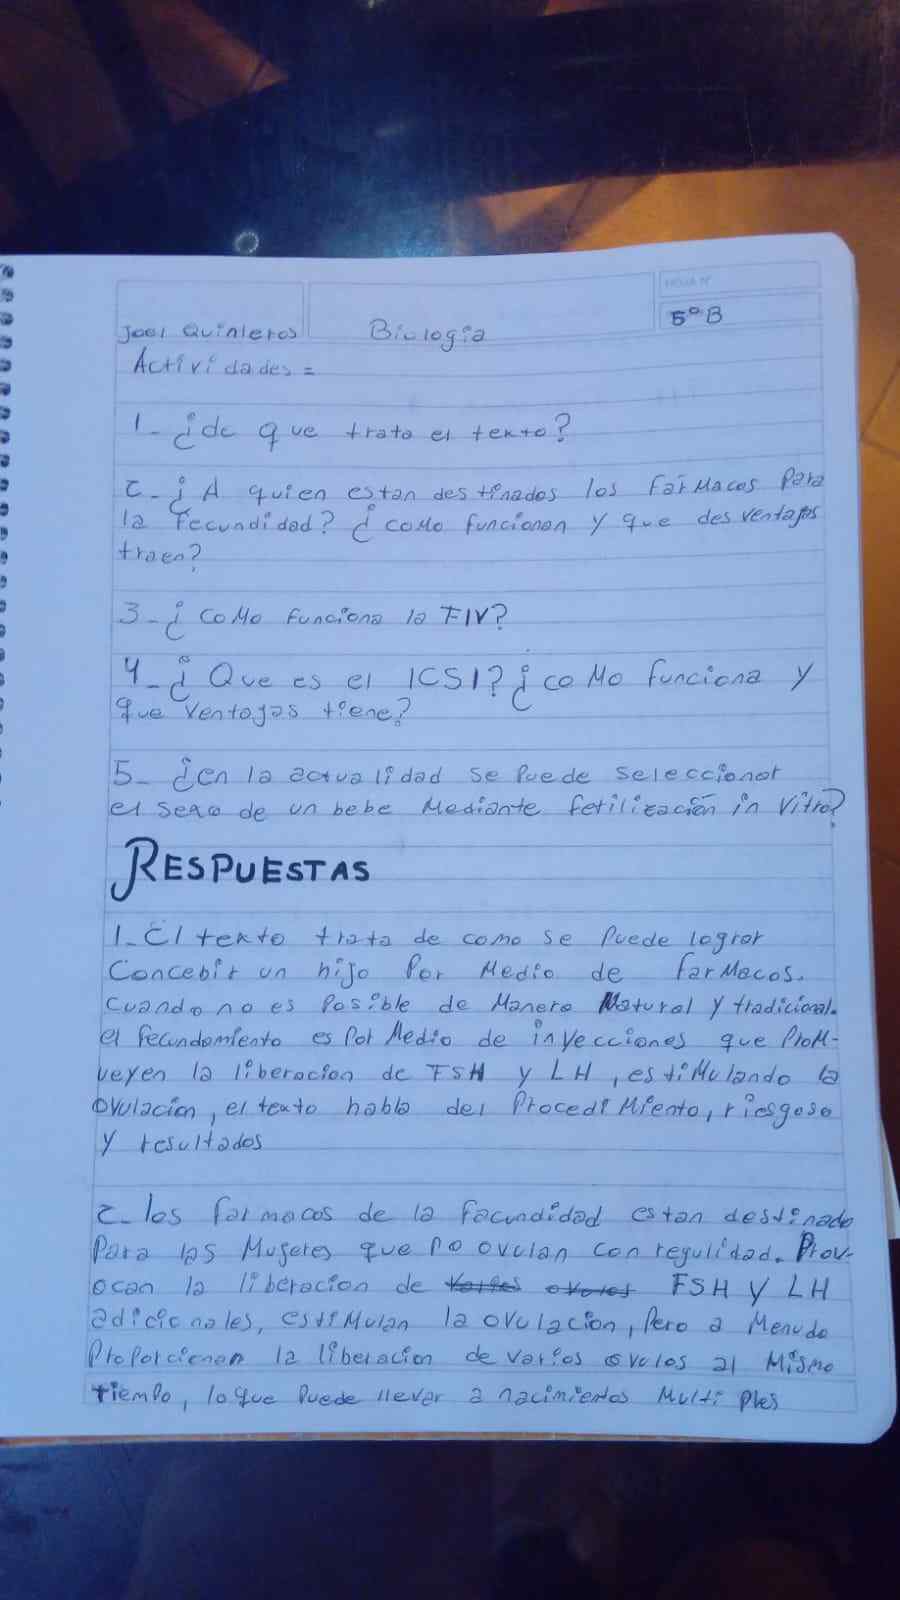 HOJA N°
Joel Quinteros Biologia 5° B
Actividades =
1- ¿de que trata el texto?
2- ¿A quien estan destinados los farmacos para
la fecundidad? ¿como funcionan y que desventajas
traen?
3- ¿como funciona la FIV?
4- ¿Que es el ICSI? ¿como funciona y
que ventajas tiene?
5- ¿en la actualidad se puede seleccionar
el sexo de un bebe mediante fetilización in vitro?
RESPUESTAS
1- El texto trata de como se puede lograr
Concebir un hijo por medio de farmacos.
cuando no es posible de manera natural y tradicional.
el fecundamiento es por medio de inyecciones que prom-
ueyen la liberacion de FSH y LH, estimulando la
ovulacion, el texto habla del procedimiento, riesgoso
y resultados
2- los farmacos de la facundidad estan destinado
para las mugeres que no ovulan con regulidad. Prov-
ocan la liberacion de FSH y LH
adicionales, estimulan la ovulacion, pero a menudo
proporcionan la liberacion de varios ovulos al mismo
tiempo, lo que puede llevar a nacimientos multiples